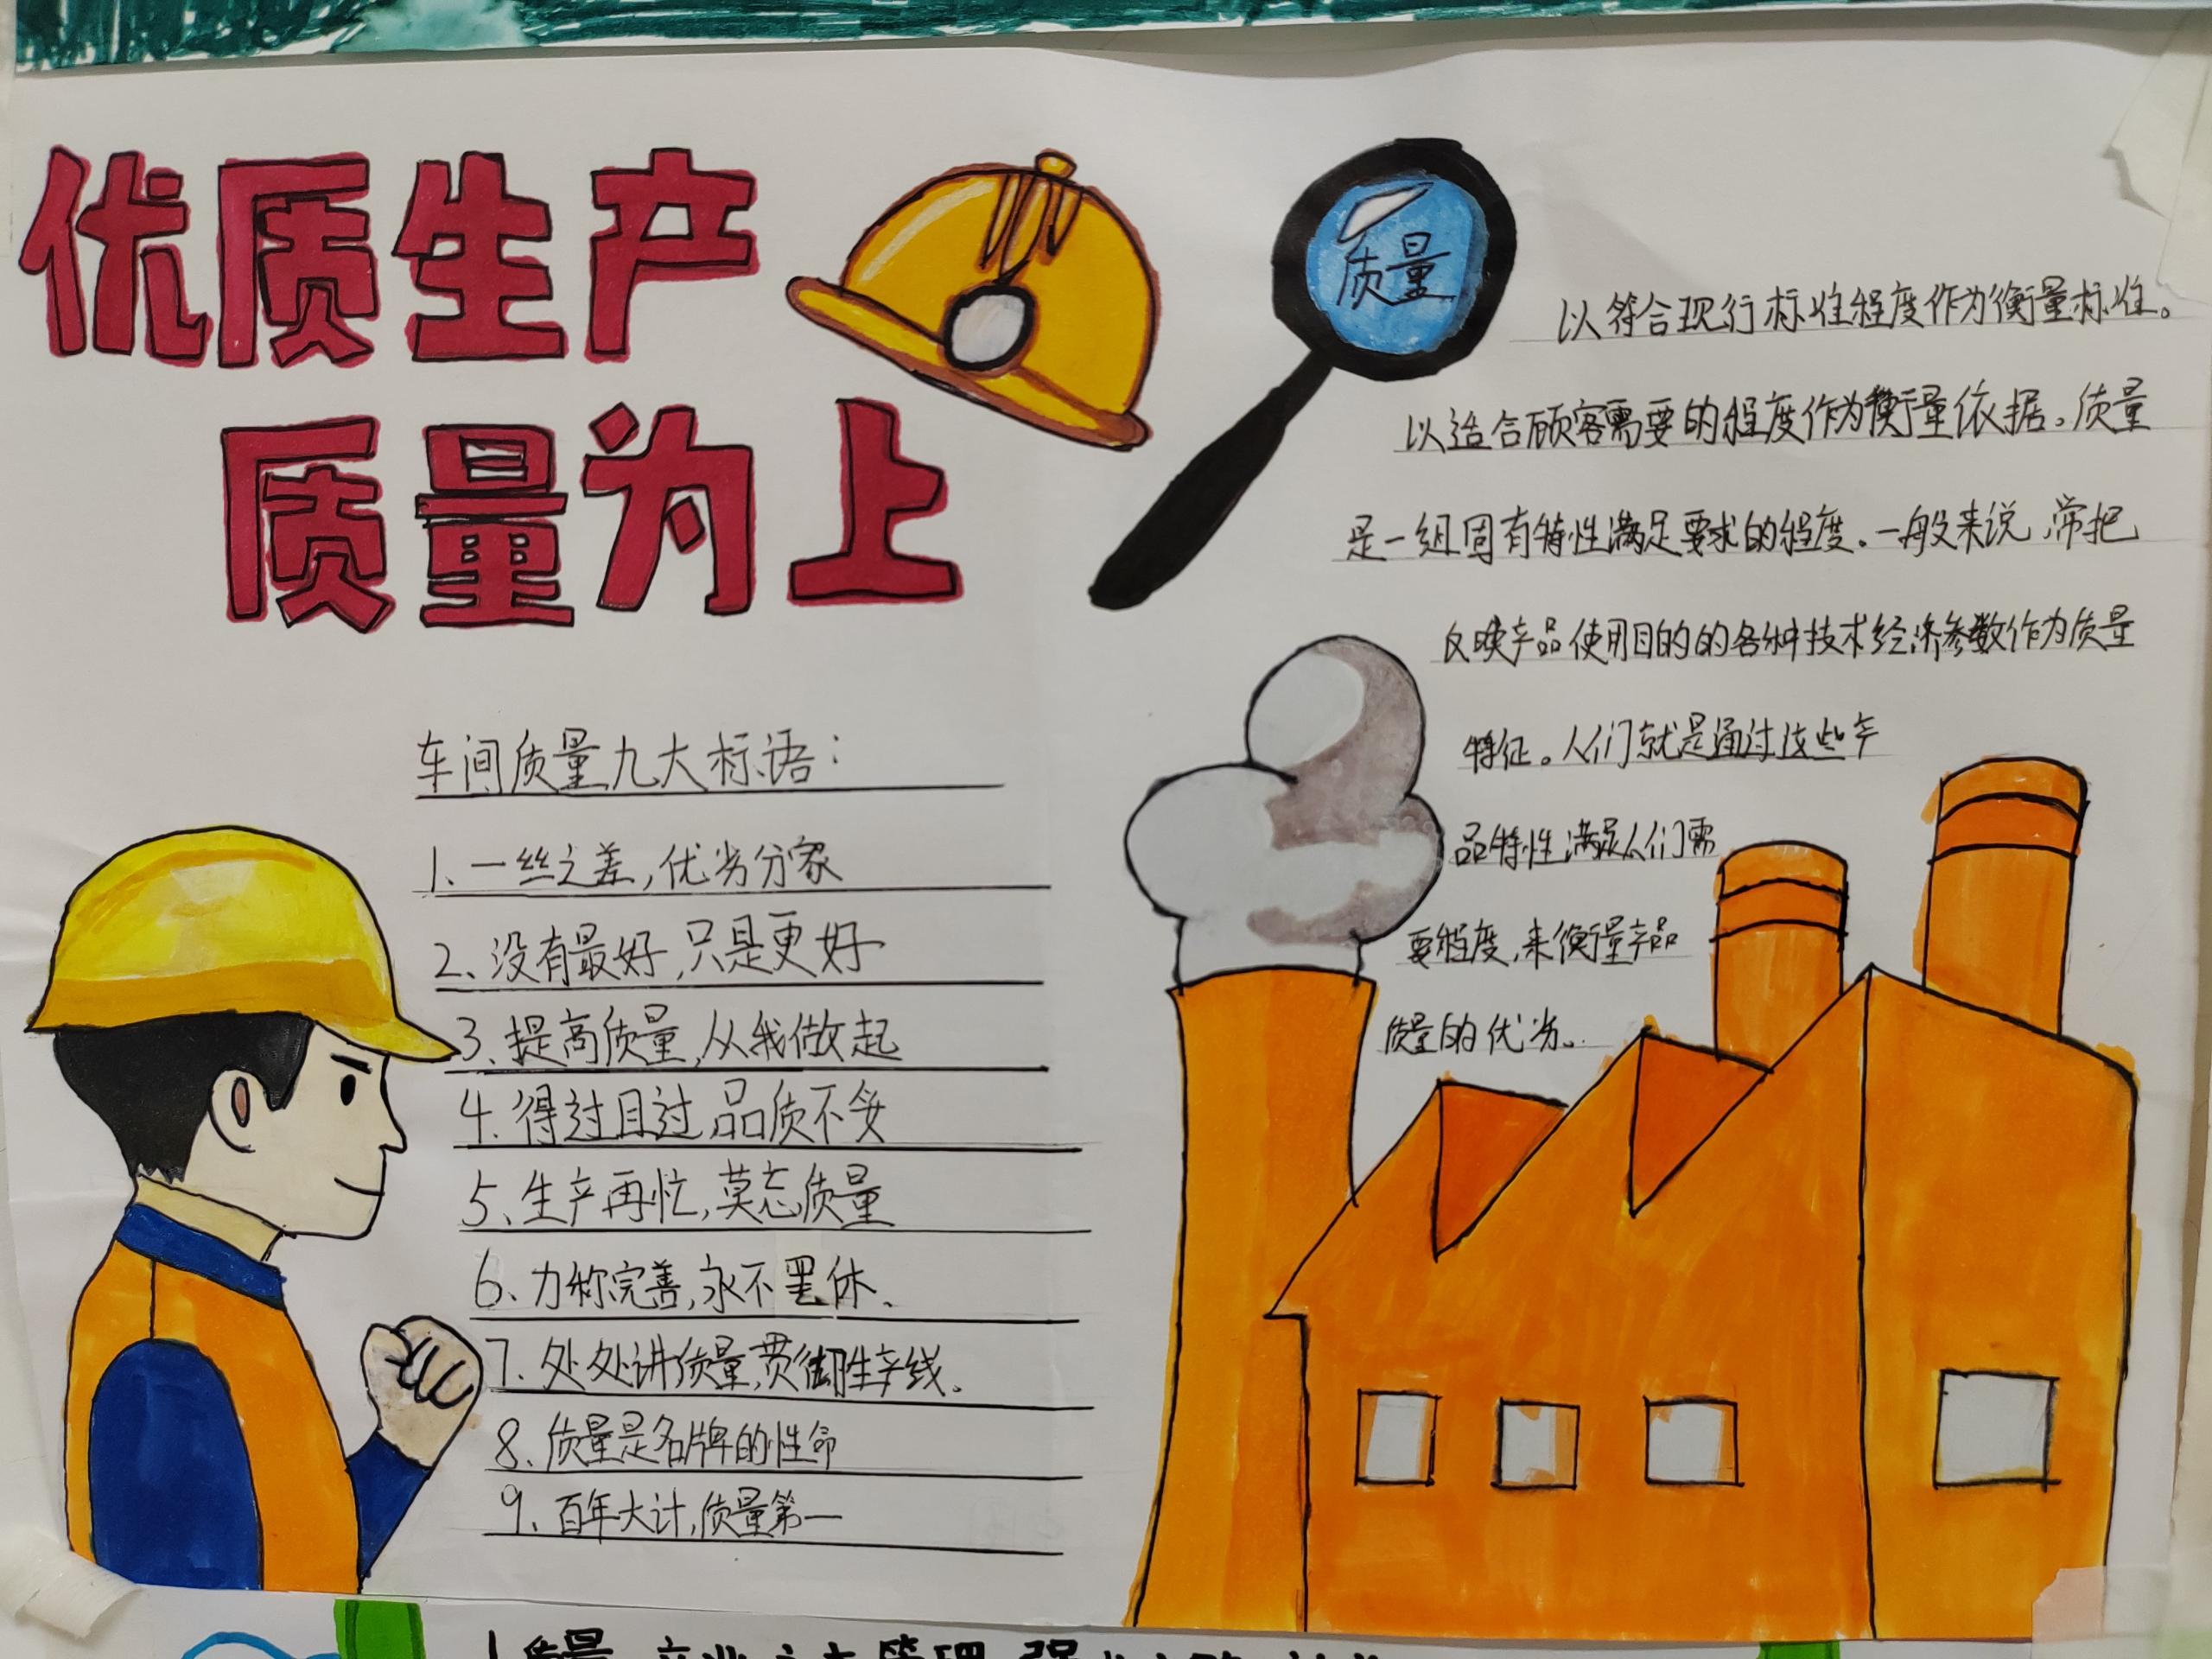 优质生产
质量为上
质量
以符合现行标准程度作为衡量标准。
以适合顾客需要的程度作为衡量依据。质量
是一组固有特性满足要求的程度。一般来说,常把
反映产品使用目的的各种技术经济参数作为质量
特征。人们就是通过这些产
品特性满足人们需
要程度,来衡量产品
质量的优劣。
车间质量九大标语:
1、一丝之差,优劣分家
2、没有最好,只是更好
3、提高质量,从我做起
4、得过且过,品质不妥
5、生产再忙,莫忘质量
6、力称完善,永不罢休、
7、处处讲质量,贯彻生产线。
8、质量是名牌的性命
9、百年大计,质量第一